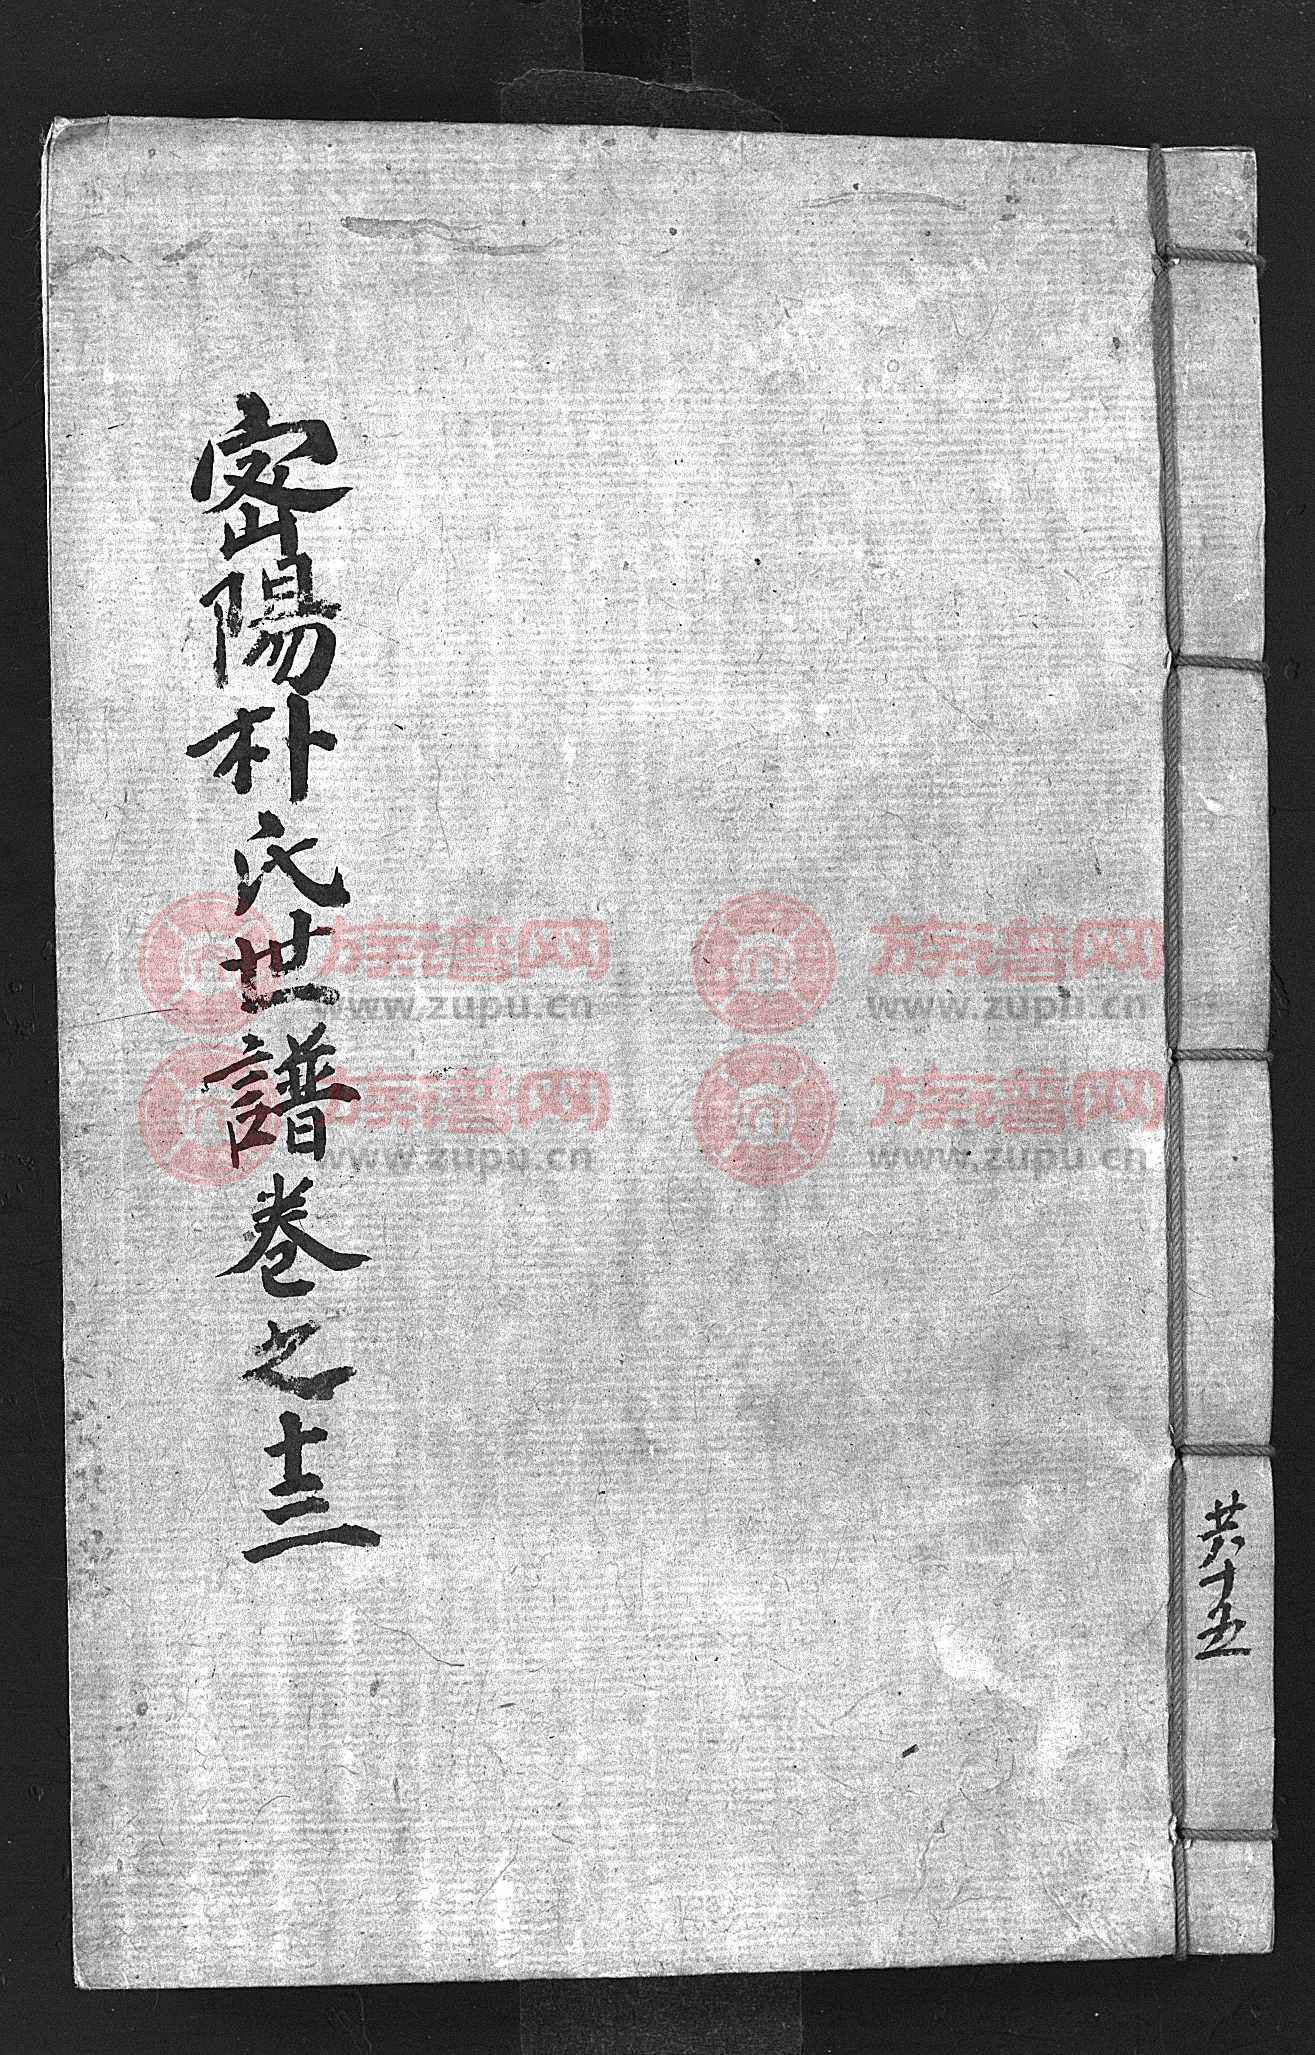 密陽朴氏世譜卷之十三
共十五
族谱网
www.zupu.cn
族谱网
www.zupu.cn
族谱网
www.zupu.cn
族谱网
www.zupu.cn